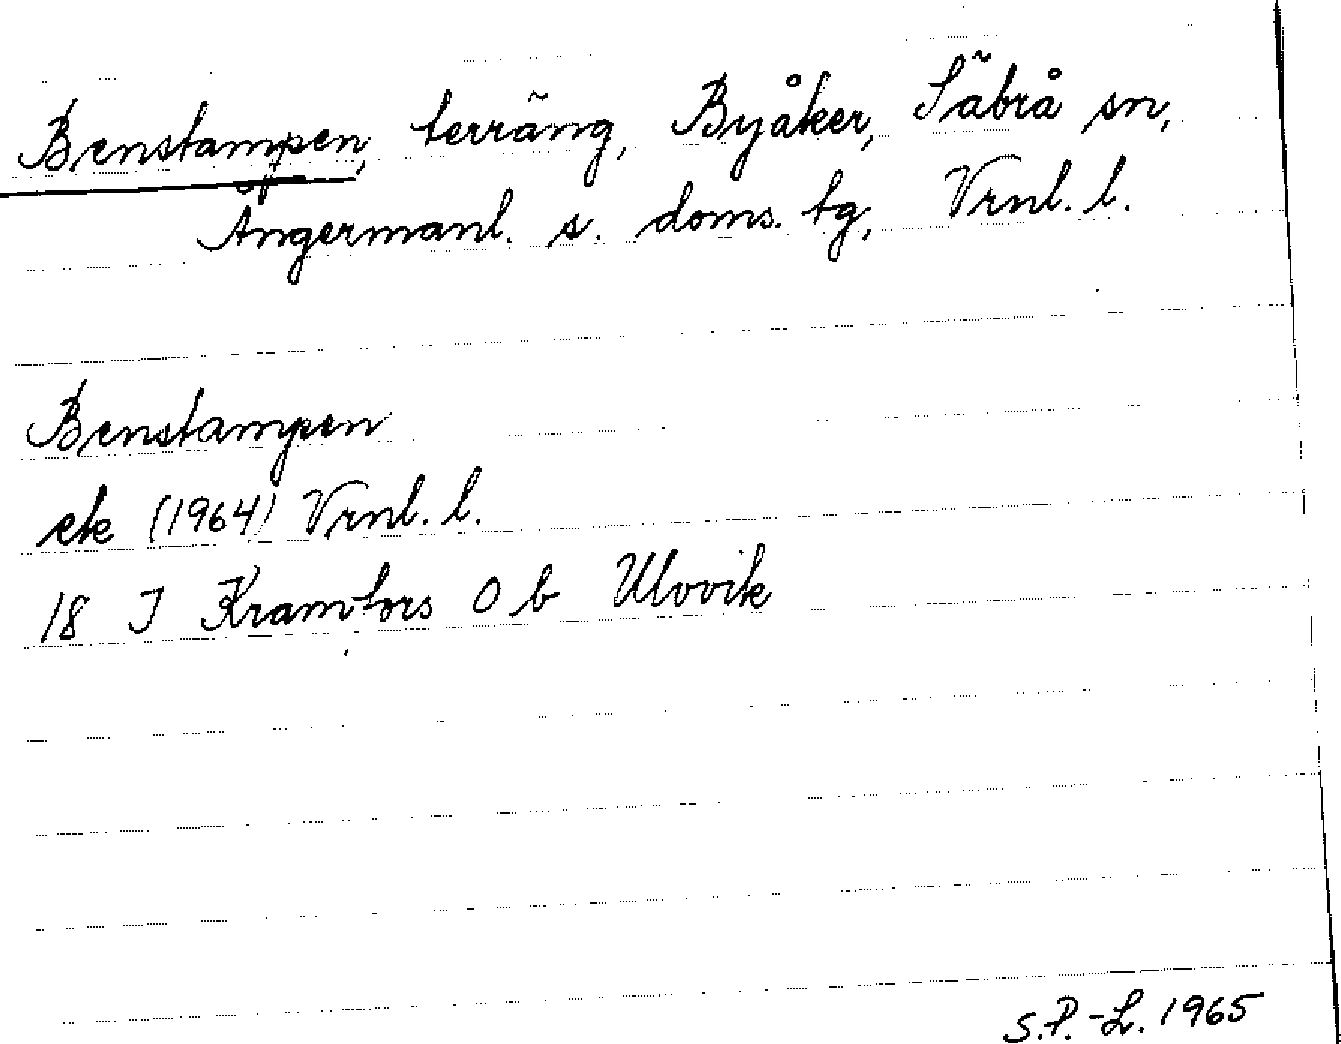 Benstampen, terräng, Byåker, Säbrå sn,
Ångermanl. s. doms. tg, Vrnl. l.
Benstampen
ek (1964) Vrnl. l.
18 I Kramfors O b Ulvvik
S.P.-L. 1965